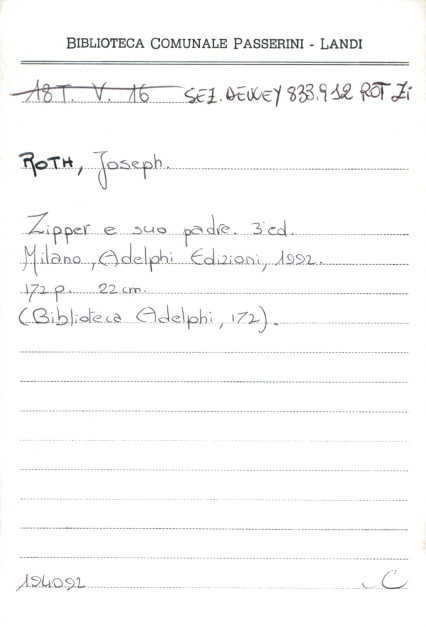 BIBLIOTECA COMUNALE PASSERINI - LANDI
18 T. V. 16 SEZ. DEWEY 833.912 ROT Zi
ROTH, Joseph.
Zipper e suo padre. 3ª ed.
Milano, Adelphi Edizioni, 1992.
172 p. 22 cm.
(Biblioteca Adelphi, 172).
194092 C